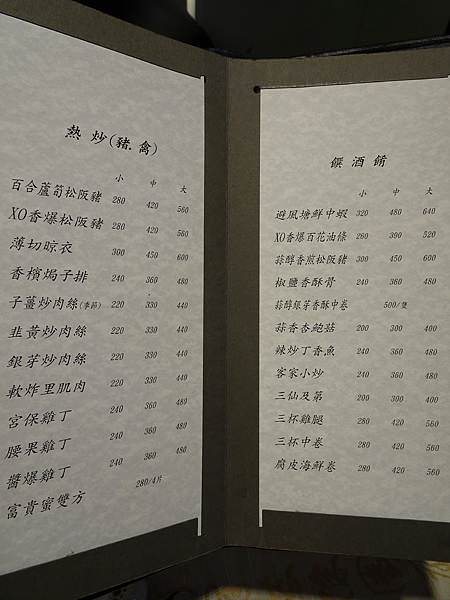 熱炒(豬.禽)
小 中 大
百合蘆筍松阪豬 280 420 560
XO香爆松阪豬 280 420 560
薄切晾衣 300 450 600
香檳焗子排 240 360 480
子薑炒肉絲(季節) 220 330 440
韭黃炒肉絲 220 330 440
銀芽炒肉絲 220 330 440
軟炸里肌肉 220 330 440
宮保雞丁 240 360 480
腰果雞丁 240 360 480
醬爆雞丁 240 360 480
富貴蜜雙方 280/4片
饌酒餚
小 中 大
避風塘鮮中蝦 320 480 640
XO香爆百花油條 260 390 520
蒜醇香煎松阪豬 300 450 600
椒鹽香酥骨 240 360 480
蒜醇銀芽香酥中卷 500/隻
蒜香杏鮑菇 200 300 400
辣炒丁香魚 240 360 480
客家小炒 240 360 480
三仙及第 200 300 400
三杯雞腿 280 420 560
三杯中卷 280 420 560
腐皮海鮮卷 280 420 560